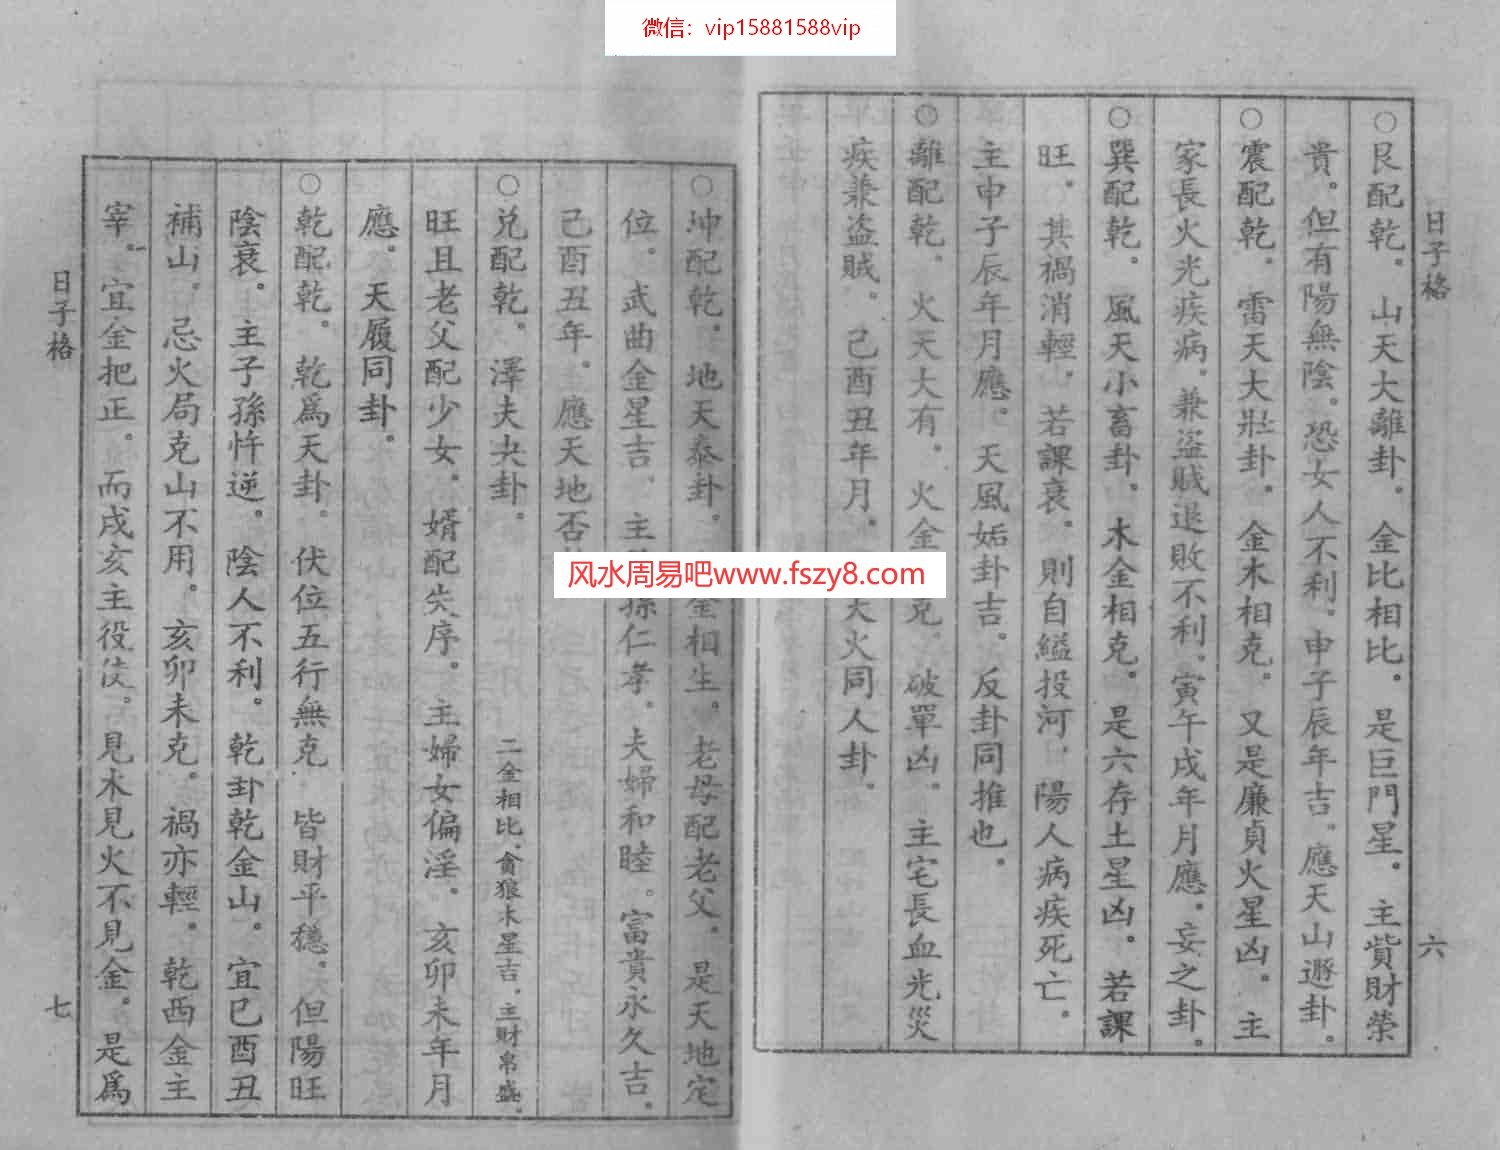 微信：vip15881588vip
日子格
六
○艮配乾。山天大離卦。金比相比。是巨門星。主貲財榮
貴。但有陽無陰。恐女人不利。申子辰年吉。應天山遯卦。
○震配乾。雷天大壯卦。金木相克。又是廉貞火星凶。主
家長火光疾病。兼盜賊退敗不利。寅午戌年月應。妄之卦。
○巽配乾。風天小畜卦。木金相克。是六存土星凶。若課
旺。其禍消輕。若課衰。則自縊投河。陽人病疾死亡。
主申子辰年月應。天風姤卦吉。反卦同推也。
○離配乾。火天大有。火金克。破單凶。主宅長血光災
疾兼盜賊。己酉丑年月。天火同人卦。
○坤配乾。地天泰卦。金相生。老母配老父。是天地定
位。武曲金星吉。主孫仁孝。夫婦和睦。富貴永久吉。
己酉丑年。應天地否
○兌配乾。澤夫夬卦。二金相比。貪狼木星吉。主財帛盛。
旺且老父配少女。婿配失序。主婦女偏淫。亥卯未年月
應。天履同卦。
○乾配乾。乾爲天卦。伏位五行無克　皆財平穩。但陽旺
陰衰。主子孫忤逆。陰人不利。乾卦乾金山。宜巳酉丑
補山。忌火局克山不用。亥卯未克。禍亦輕。乾西金主
宰。宜金把正。而戌亥主役使。見木見火不見金。是爲
日子格
七
风水周易吧www.fszy8.com